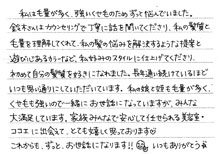 私は毛量が多く、強いくせ毛のためずっと悩んでいました。
鈴木さんはカウンセリングで丁寧に話を聞いてくださり、私の髪質と
毛量を理解してくれて、私の髪の悩みを解決するような提案と
遊び心あるカラーなど、私好みのスタイルに仕上げてくださり、
初めて自分の髪質を好きになれました。長年通い続けているほど
いつも良い通りにしていただいています。私の娘と姪も毛量が多く、
くせ毛も強いので一緒にお世話になっていますが、みんな
大満足しています。家族みんなで安心して任せられる美容室・
ココエに出会えて、とても嬉しく思っております
これからも、ずっと、お世話になります!! いつもありがとう